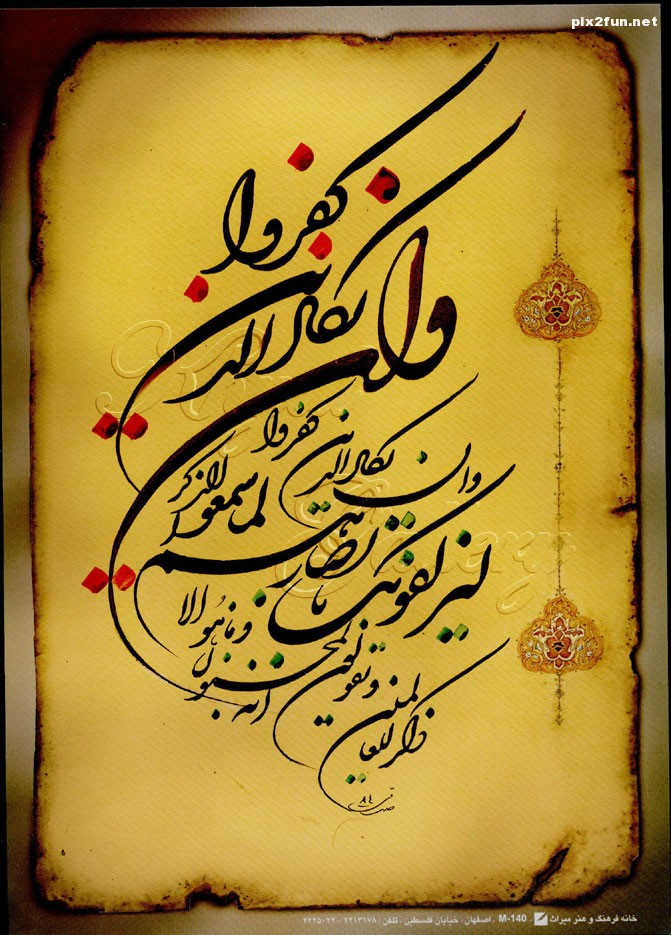 pix2fun.net
وان یکاد الذین کفروا
وان یکاد الذین کفروا
لیزلقونک بابصارهم لما سمعوا الذکر
و یقولون انه لمجنون
و ما هُو الا
ذکر للعالمین
۸۴
خانه فرهنگ و هنر میراث M-140 ، اصفهان ، خیابان فلسطین ، تلفن : ۲۲۱۳۱۷۸ - ۲۲۲۵۰۲۲